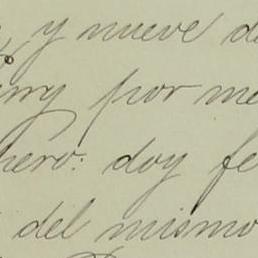 y nueve de
por me
nero: doy fe
del mismo